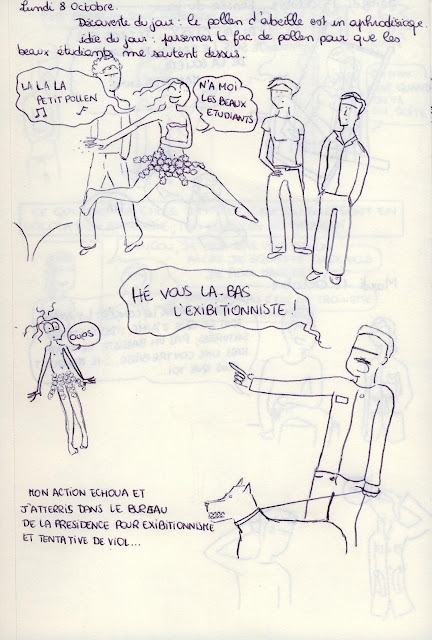 Lundi 8 Octobre.
Découverte du jour : le pollen d'abeille est un aphrodisiaque.
idée du jour : parsemer la fac de pollen pour que les
beaux étudiants me sautent dessus.
LA LA LA
PETIT POLLEN
N'A MOI
LES BEAUX
ETUDIANTS
HÉ VOUS LA-BAS
L'EXIBITIONNISTE !
OUPS
MON ACTION ECHOUA ET
J'ATTERRIS DANS LE BUREAU
DE LA PRESIDENCE POUR EXIBITIONNISME
ET TENTATIVE DE VIOL...